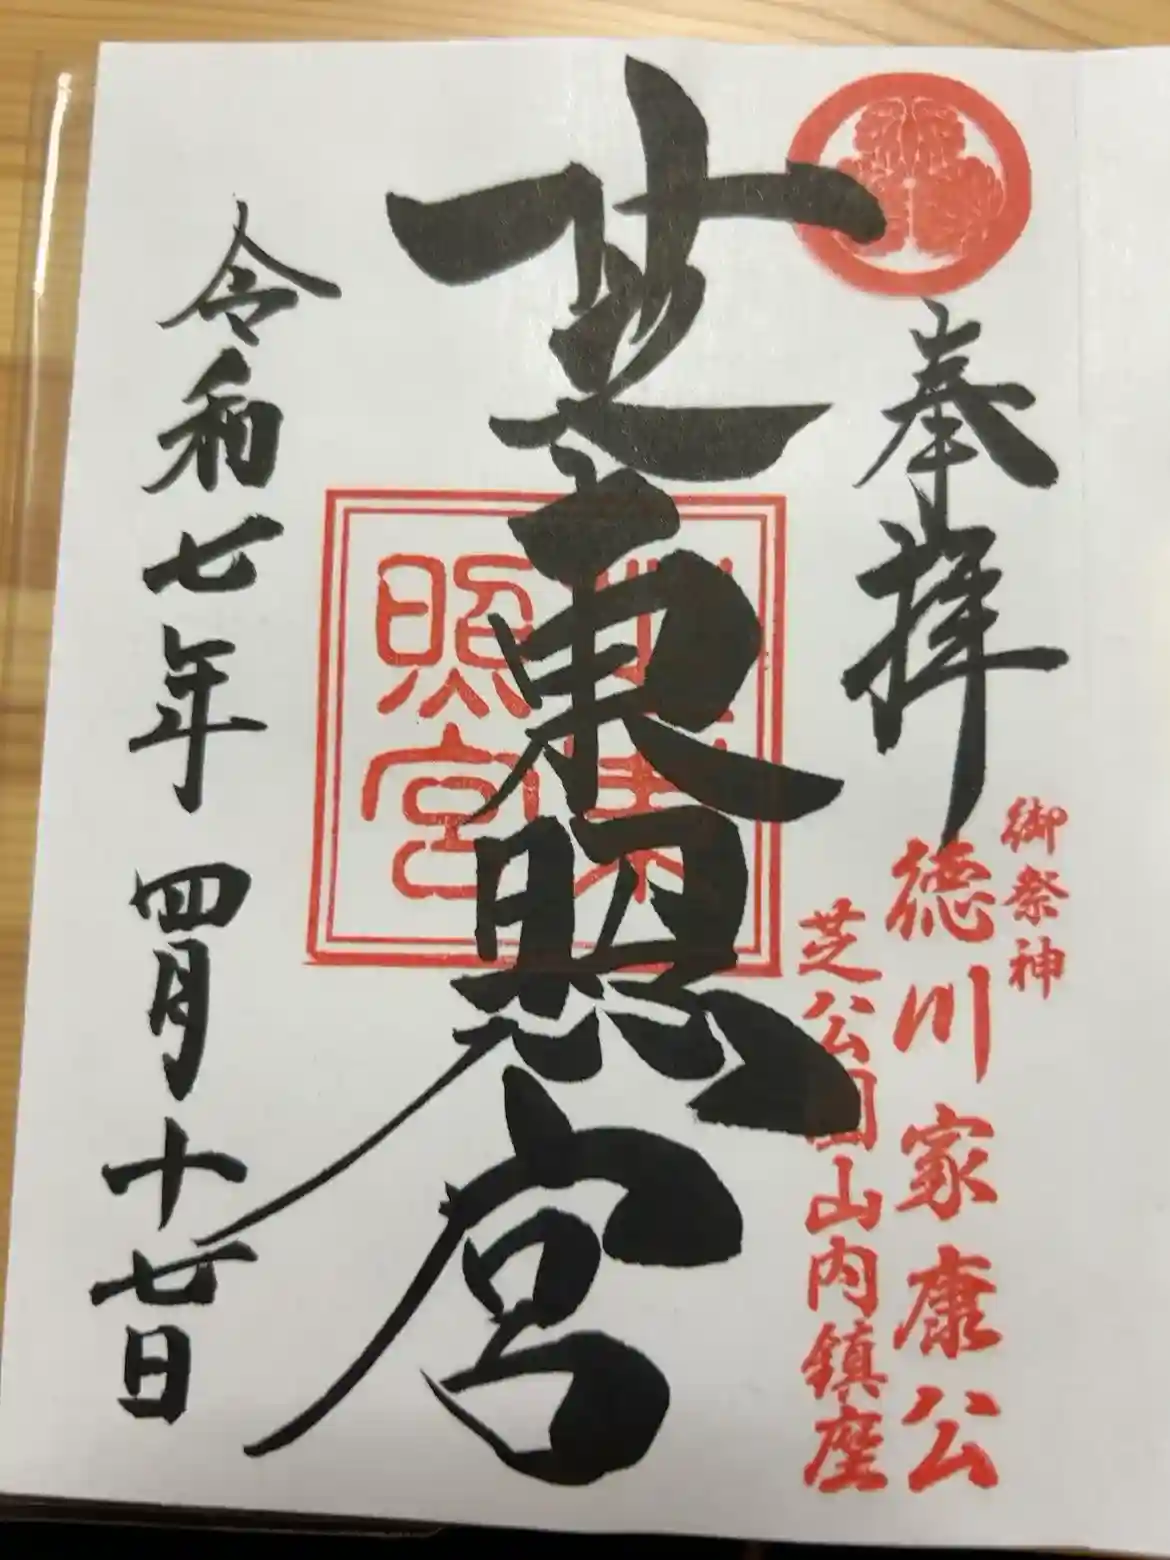 奉拝
御祭神
徳川家康公
芝公園山内鎮座
芝東照宮
芝東
照宮
令和七年四月十七日